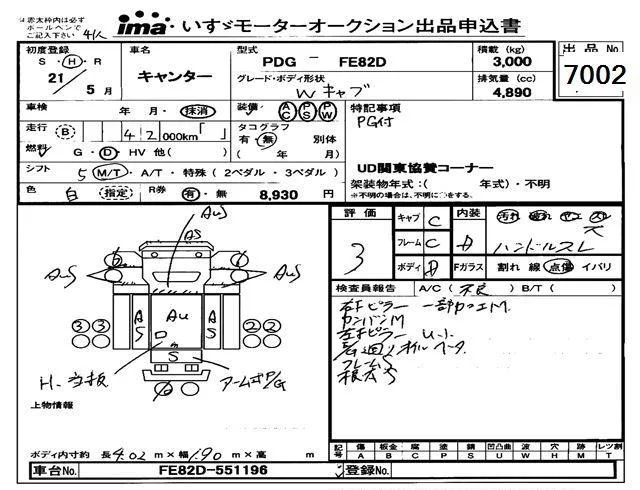 赤太枠内は必ず
ボールペンで
ご記入下さい
4人
ima いすゞモーターオークション出品申込書
初度登録 車名 型式 積載 (kg) 出品No
S・H・R キャンター PDG - FE82D 3,000 7002
21/5月 グレード・ボディ形状 排気量 (cc)
Wキャブ 4,890
車検 年・月・抹消 装備・ AC PS PW 特記事項
PG付
走行 B 42,000km「 」 タコグラフ 有・無 別体
燃料 G・D・HV 他( ) ( 年 月) UD関東協賛コーナー
シフト 5 M/T・A/T・特殊 ( 2ペダル・3ペダル ) 架装物年式:( 年式)・不明
※不明の場合は、不明に○をする。
色 白 (指定) R券 有・無 8,930 円
評価 キャブ C 内装 汚れ 破れ ヤニ スレ
3 フレーム C A ハンドルスレ
ボディ A Fガラス 割れ 線 点傷 イバリ
検査員報告 A/C ( 不良 ) B/T ( )
右Fピラー 一部カエM
フレームS
AuS AS
AuS AuS
3 3 A S Au A S 2 2
S
アーム式P/G
上物情報
ボディ内寸約 長 4.02 m×幅 1.90 m×高 m
記号 傷 板金 腐 塗 錆 凹凸曲 波 穴 跡 レツ割
A B C P S U W H M T
車台No. FE82D-551196 登録No.